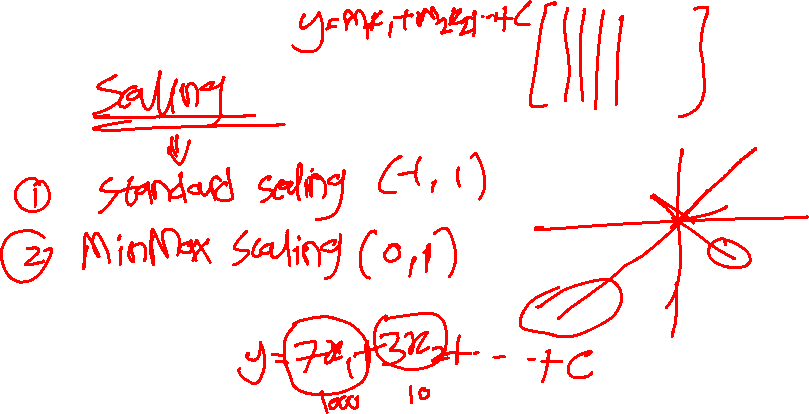 y=m₁x₁+m₂x₂+...+C
Scaling
① Standard scaling (-1, 1)
② MinMax scaling (0, 1)
y=7x₁+3x₂+...+C
1000 10